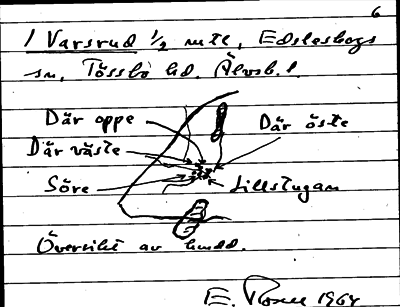 6
1 Varsrud 1/2 mtl, Edsleskogs
sn, Tössbo hd. Älvsb. l.
Där oppe
Där öste
Där väste
Söre
Lillstugan
Översikt av
E. 1964